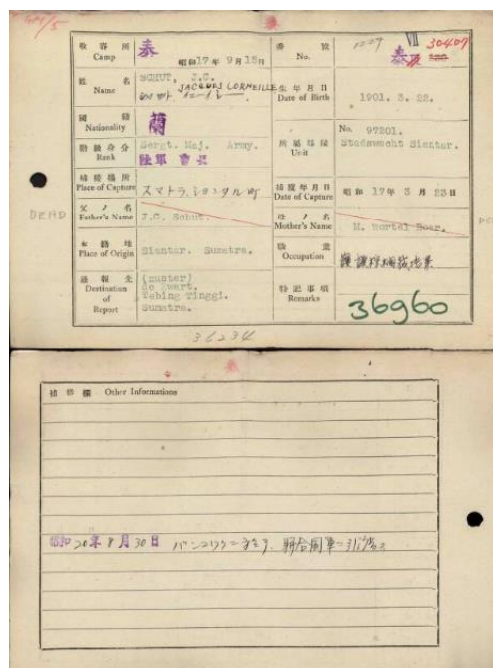 5
泰
收容所
Camp
泰
昭和17年 9月15日
番號
No.
1029
VII
泰
30407
姓名
Name
SCHUT, J.C.
JACQUES CORNEILLE
生年月日
Date of Birth
1901. 3. 22.
國籍
Nationality
蘭
階級身分
Rank
Sergt. Maj. Army.
陸軍 曹長
所屬部隊
Unit
No. 97201.
Stadswacht Siantar.
捕獲場所
Place of Capture
スマトラ、シヤンタル町
捕獲年月日
Date of Capture
昭和 17年 3月 23日
父ノ名
Father's Name
J.C. Schut.
母ノ名
Mother's Name
M. Wortel Boer.
本籍地
Place of Origin
Siantar. Sumatra.
職業
Occupation
通報先
Destination
of
Report
(zuster)
de Zwart.
Tebing Tinggi.
Sumatra.
特記事項
Remarks
36960
36234
補修欄 Other Informations
昭和20年8月30日